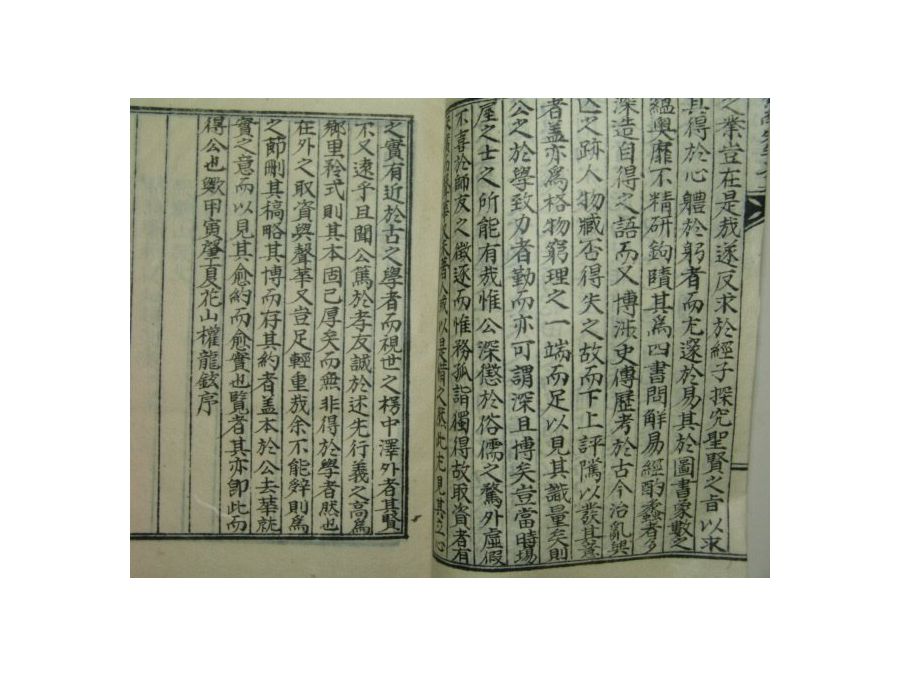 之業豈在是哉遂反求於經子探究聖賢之旨以求
其得於心體於躬者而尤邃於易其於圖書象數之
蘊奧靡不精研鉤賾其爲四書問解易經酌蠡者多
深造自得之語而又博涉史傳歷考於古今治亂興
亡之跡人物臧否得失之故而下上評騭以發其意
者盖亦爲格物窮理之一端而足以見其識量矣則
公之於學致力者勤而亦可謂深且博矣豈當時場
屋之士之所能有哉惟公深懲於俗儒之騖外虛假
不喜於師友之徵逐而惟務孤詣獨得故取資者有
之實有近於古之學者而視世之楞中澤外者其賢
不又遠乎且聞公篤於孝友誠於述先行義之高爲
鄉里矜式則其本固已厚矣而無非得於學者然也
在外之取資與聲華又豈足輕重哉余不能辤則爲
之節刪其稿略其博而存其約者盖本於公去華就
實之意而以見其愈約而愈實也覽者其亦卽此而
得公也歟甲寅肇夏花山權龍鉉序